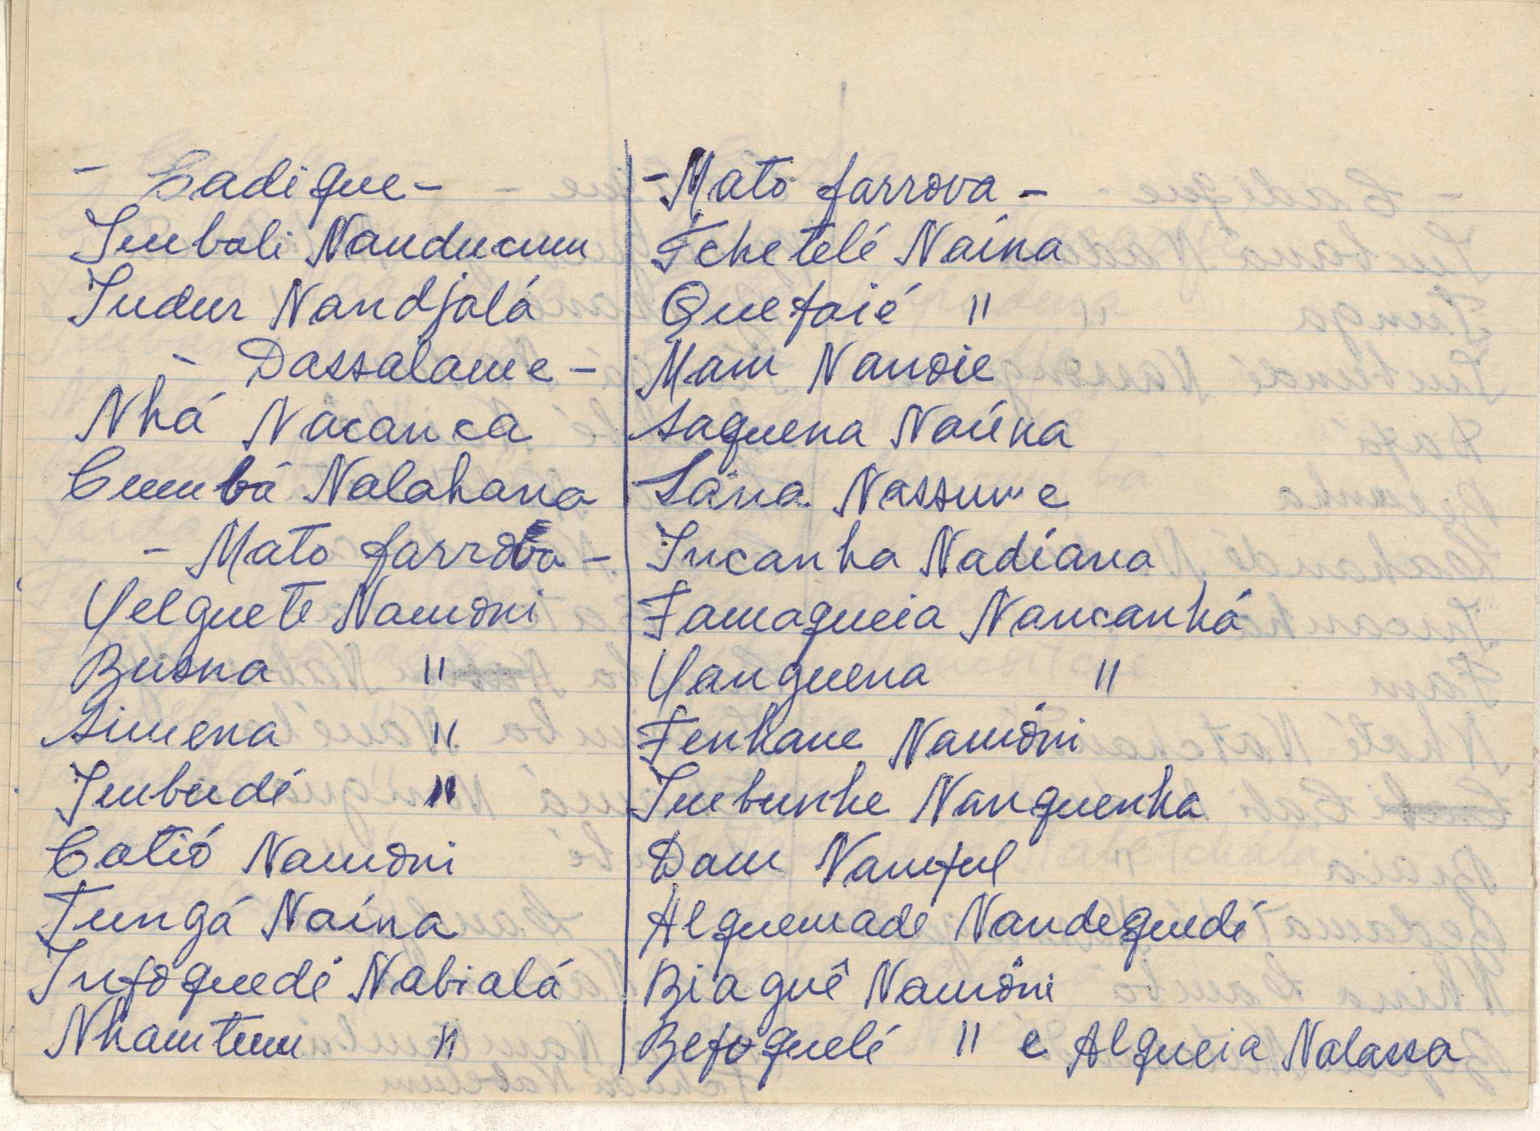 - Cadique -
Imbali Nanducum
Indur Nandjalá
- Dassalame -
Nhá Nacanca
Cumbá Nalahana
- Mato farroba -
Yelguete Namoni
Busna "
Simena "
Imbudé "
Catió Namoni
Tungá Naína
Infoguedé Nabialá
Nhamtum "
- Mato farrova -
Tchetelé Naína
Quefaié "
Mam Nanoie
Saquena Naúna
Sána Nassume
Incanha Nadíana
Famaqueia Nancanhá
Yanguena "
Fenhane Namóni
Imbunhe Nanquenha
Dam Namful
Alquemade Nandeguedé
Biaguê Namôni
Befoguelé " e Algueia Nalassa